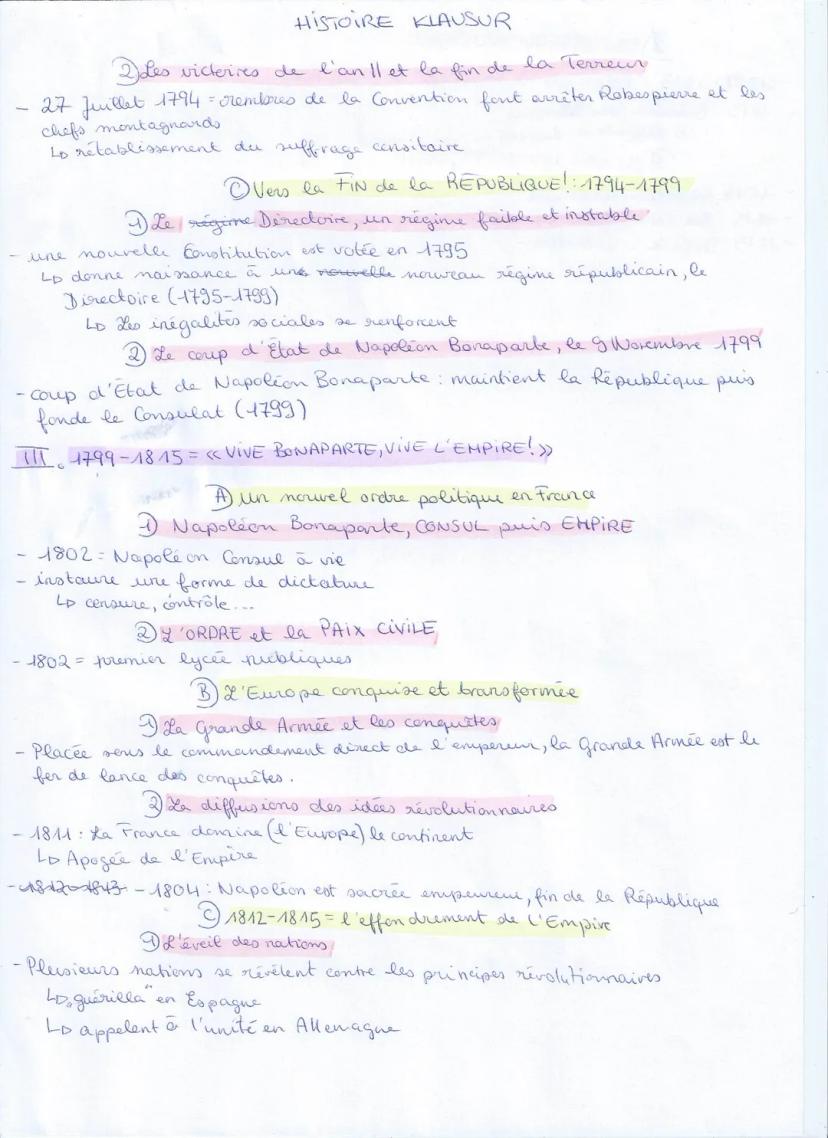 HISTOIRE KLAUSUR
② Les victoires de l'an II et la fin de la Terreur
- 27 Juillet 1794 = membres de la Convention font arrêter Robespierre et les
chefs montagnards
↳ rétablissement du suffrage censitaire
Ⓒ Vers la FIN de la RÉPUBLIQUE! : 1794-1799
① Le régime Directoire, un régime faible et instable
- une nouvelle Constitution est votée en 1795
↳ donne naissance à une nouvelle nouveau régime républicain, le
Directoire (1795-1799)
↳ Les inégalités sociales se renforcent
② Le coup d'État de Napoléon Bonaparte, le 9 Novembre 1799
- coup d'État de Napoléon Bonaparte : maintient la République puis
fonde le Consulat (1799)
III. 1799-1815 = « VIVE BONAPARTE, VIVE L'EMPIRE! »
Ⓐ Un nouvel ordre politique en France
① Napoléon Bonaparte, CONSUL puis EMPIRE
- 1802 = Napoléon Consul à vie
- instaure une forme de dictature
↳ censure, contrôle...
② L'ORDRE et la PAIX CIVILE
- 1802 = premier lycée publiques
Ⓑ L'Europe conquise et transformée
① La Grande Armée et les conquêtes
- Placée sous le commandement direct de l'empereur, la Grande Armée est le
fer de lance des conquêtes.
② La diffusions des idées révolutionnaires
- 1811 : La France domine (l'Europe) le continent
↳ Apogée de l'Empire
- 1812-1813 - 1804 : Napoléon est sacrée empeureur, fin de la République
Ⓒ 1812-1815 = l'effondrement de l'Empire
① L'éveil des nations
- Plusieurs nations se révêlent contre les principes révolutionnaires
↳ „guérilla" en Espagne
↳ appelent à l'unité en Allemagne